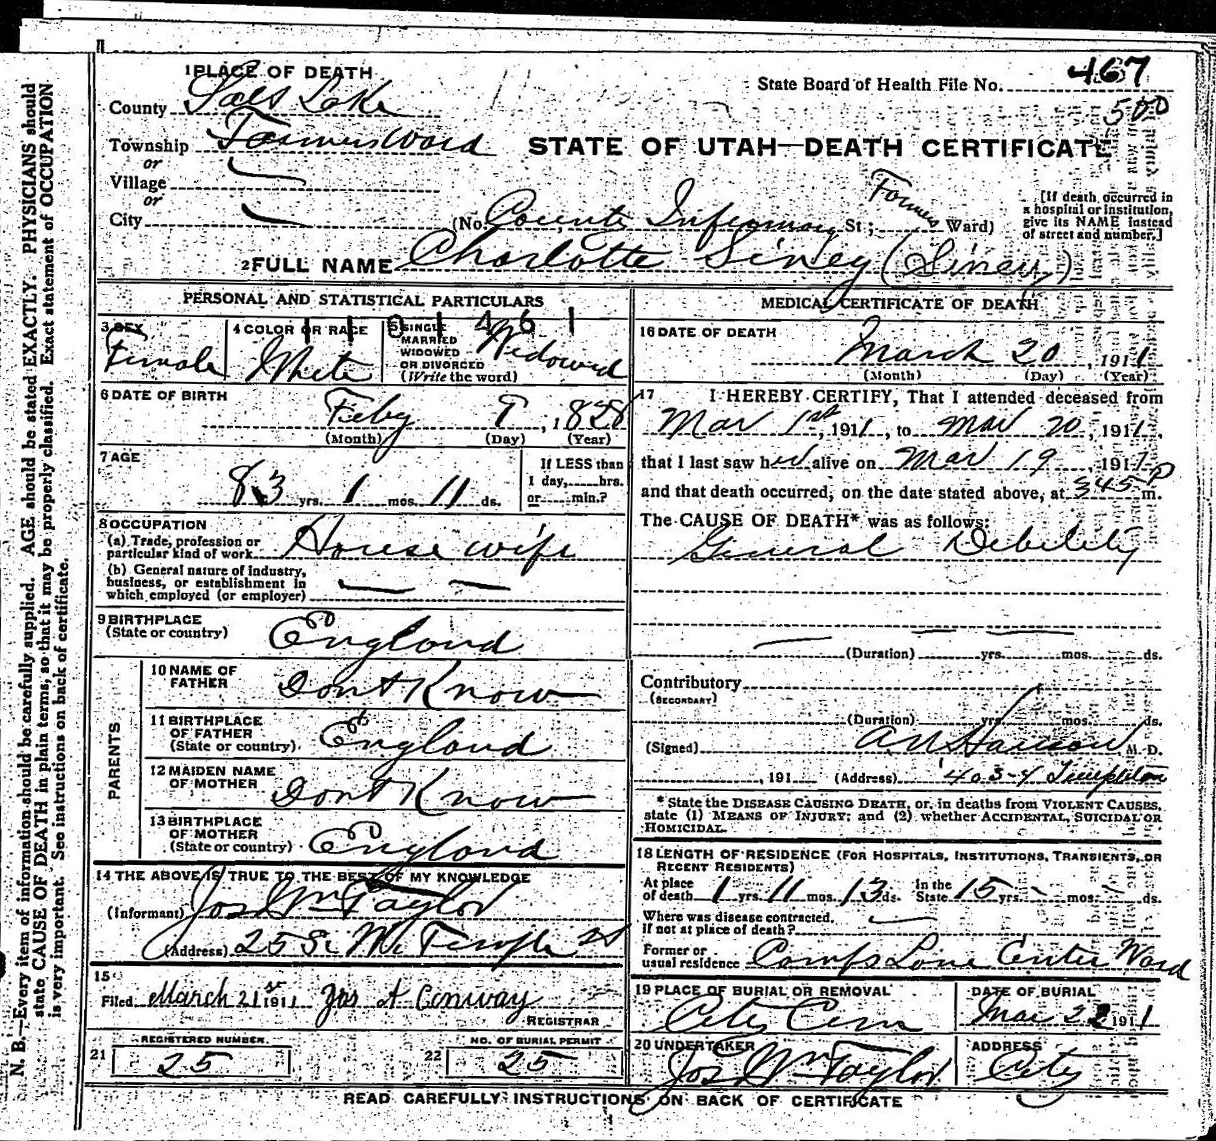 1 PLACE OF DEATH
County Salt Lake
State Board of Health File No. 467
500
Township Farmers Ward
or
Village
or
City
STATE OF UTAH—DEATH CERTIFICATE
(No. County Infirmary St.; Farmers Ward)
[If death occurred in a hospital or institution, give its NAME instead of street and number.]
2 FULL NAME Charlotte Siney (Siney)
PERSONAL AND STATISTICAL PARTICULARS
3 SEX Female
4 COLOR OR RACE White
5 SINGLE MARRIED WIDOWED OR DIVORCED (Write the word) Widowed
6 DATE OF BIRTH Feby 9, 1828
(Month) (Day) (Year)
7 AGE 83 yrs. 1 mos. 11 ds.
If LESS than 1 day, hrs. or min.?
8 OCCUPATION
(a) Trade, profession or particular kind of work House wife
(b) General nature of industry, business, or establishment in which employed (or employer)
9 BIRTHPLACE
(State or country) England
PARENTS
10 NAME OF FATHER Dont Know
11 BIRTHPLACE OF FATHER (State or country) England
12 MAIDEN NAME OF MOTHER Dont Know
13 BIRTHPLACE OF MOTHER (State or country) England
14 THE ABOVE IS TRUE TO THE BEST OF MY KNOWLEDGE
(Informant) Jos Wm Taylor
(Address) 25 So W Temple St
15
Filed March 21st 1911 Jas A Conway
REGISTRAR
21 REGISTERED NUMBER. 25
22 NO. OF BURIAL PERMIT 25
MEDICAL CERTIFICATE OF DEATH
16 DATE OF DEATH
March 20, 1911
(Month) (Day) (Year)
17 I HEREBY CERTIFY, That I attended deceased from
Mar 1st, 1911, to Mar 20, 1911,
that I last saw her alive on Mar 19, 1911
and that death occurred, on the date stated above, at 345 P m.
The CAUSE OF DEATH* was as follows:
General Debility
(Duration) yrs. mos. ds.
Contributory
(SECONDARY)
(Duration) yrs. mos. ds.
(Signed) A N Hanson M. D.
, 191 (Address) 403-4 Templeton
* State the DISEASE CAUSING DEATH, or, in deaths from VIOLENT CAUSES, state (1) MEANS OF INJURY; and (2) whether ACCIDENTAL, SUICIDAL OR HOMICIDAL.
18 LENGTH OF RESIDENCE (FOR HOSPITALS, INSTITUTIONS, TRANSIENTS, OR RECENT RESIDENTS)
At place of death 1 yrs. 11 mos. 13 ds. In the State 15 yrs. mos. ds.
Where was disease contracted, if not at place of death?
Former or usual residence Center Ward
19 PLACE OF BURIAL OR REMOVAL City Cem
DATE OF BURIAL Mar 22 1911
20 UNDERTAKER Jos Wm Taylor
ADDRESS City
READ CAREFULLY INSTRUCTIONS ON BACK OF CERTIFICATE
N. B.—Every item of information should be carefully supplied. AGE should be stated EXACTLY. PHYSICIANS should
state CAUSE OF DEATH in plain terms, so that it may be properly classified. Exact statement of OCCUPATION
is very important. See instructions on back of certificate.